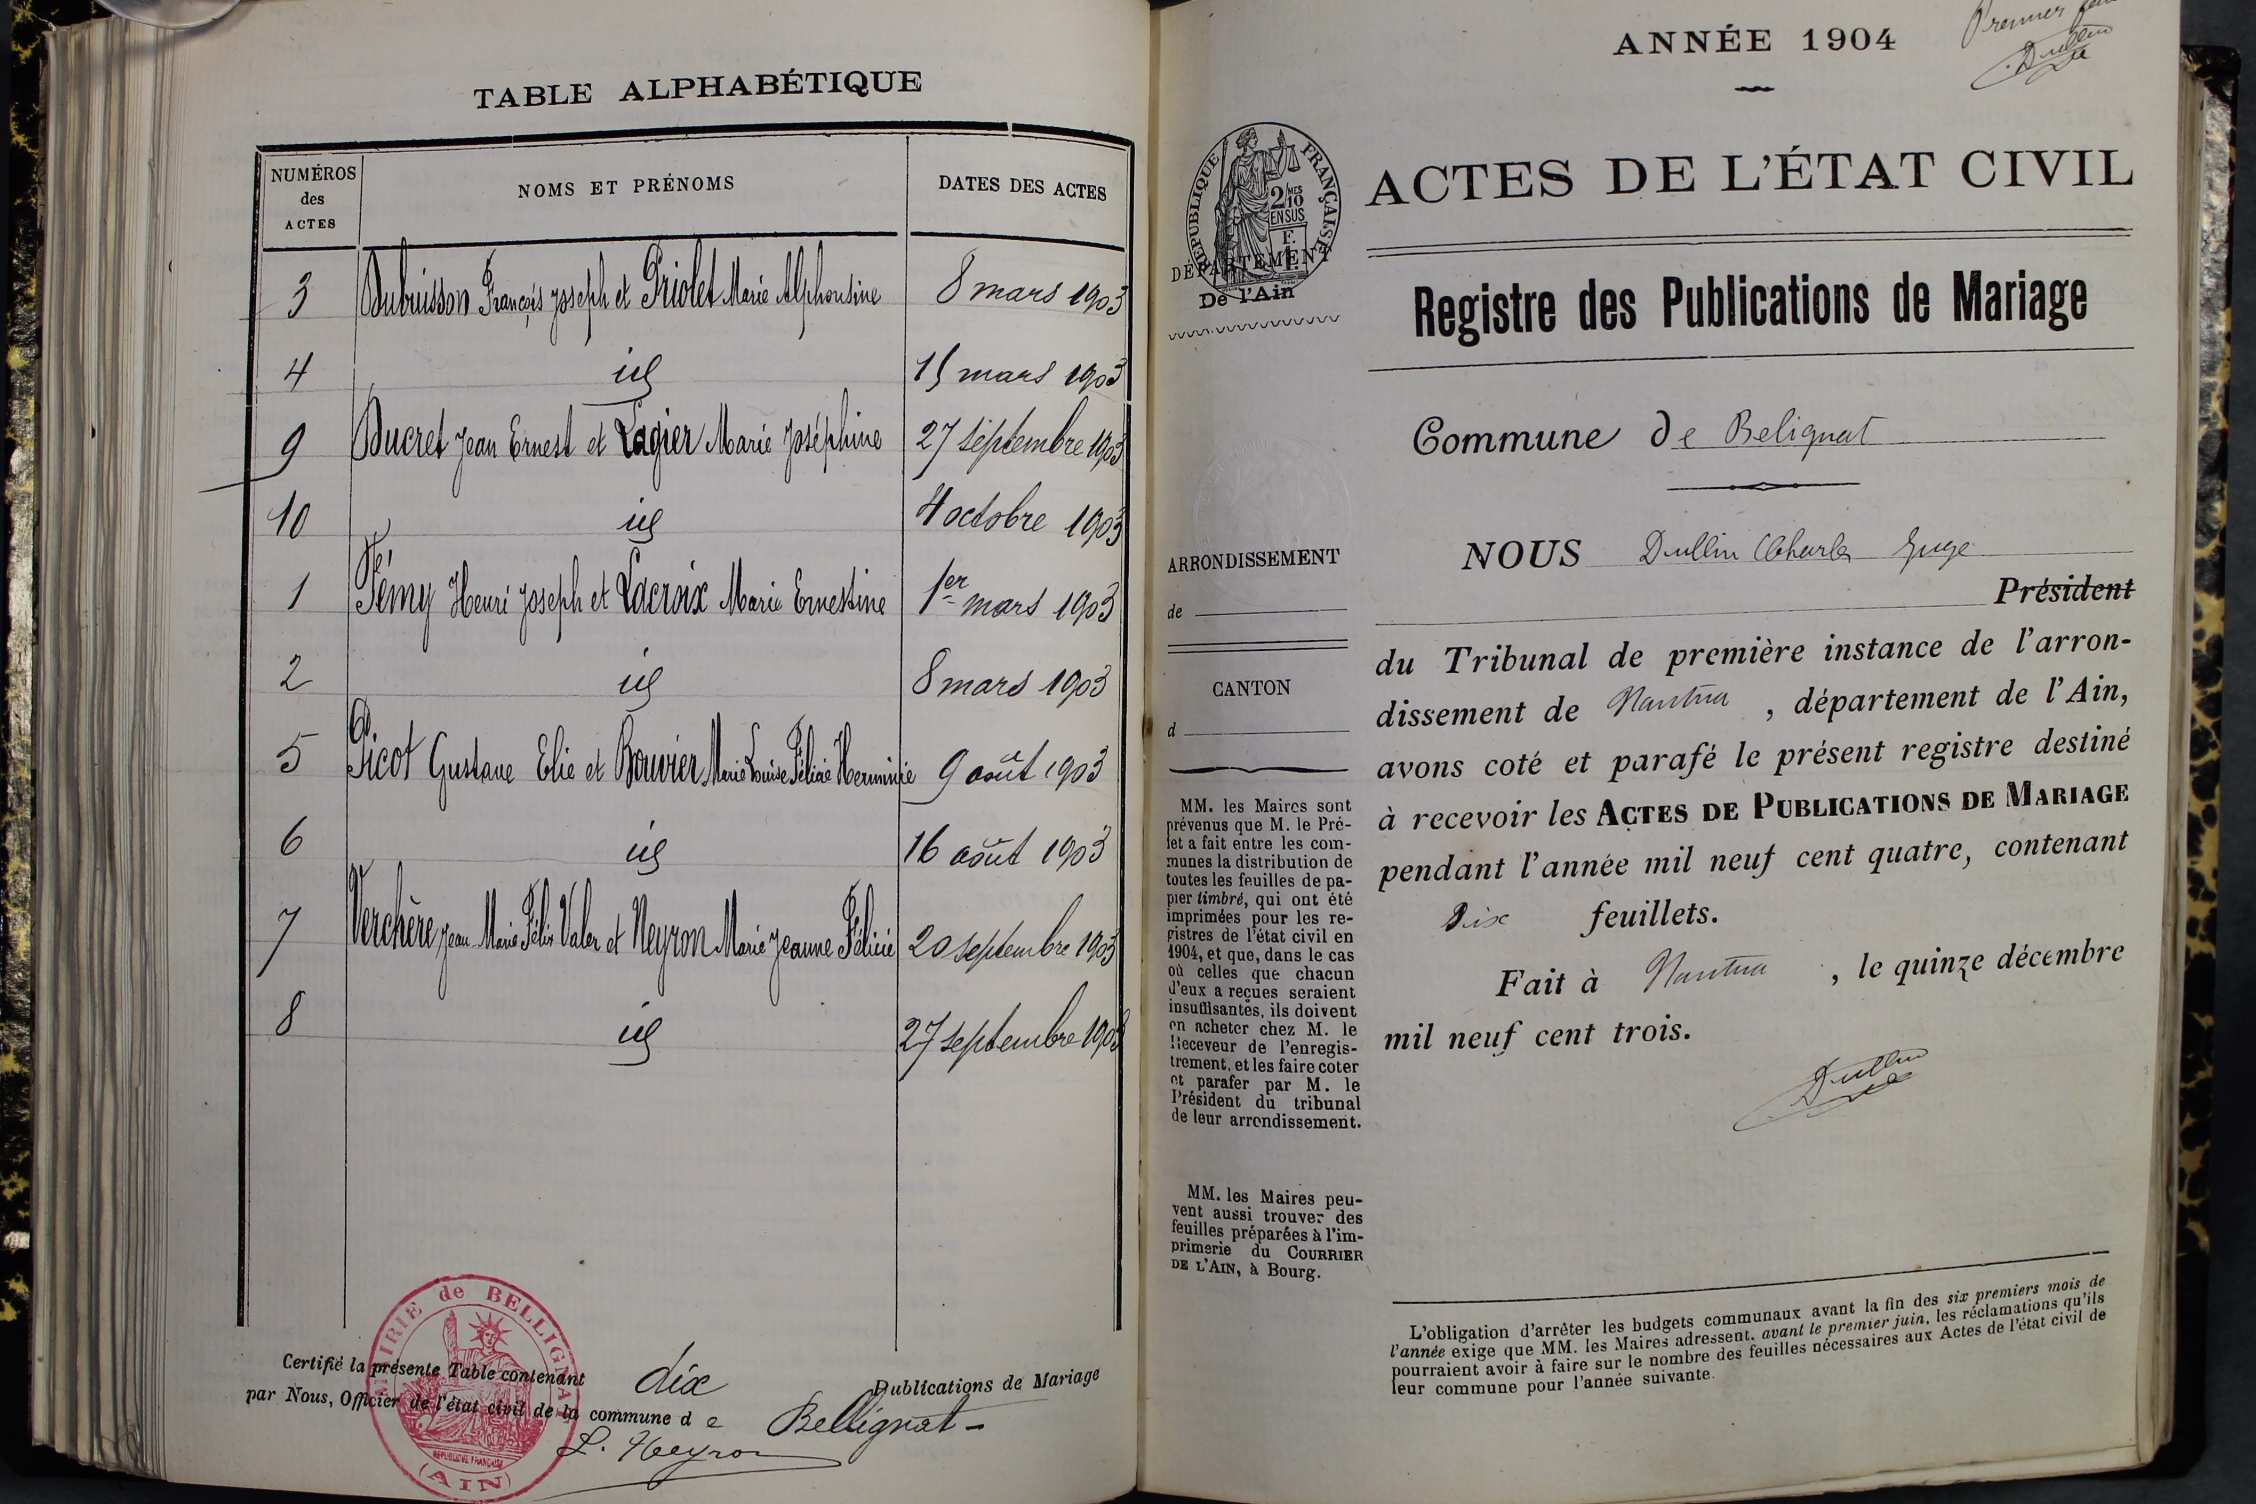 TABLE ALPHABÉTIQUE
NUMÉROS des ACTES
NOMS ET PRÉNOMS
DATES DES ACTES
3 Dubuisson François Joseph et Priolet Marie Alphonsine 8 mars 1903
4 id 15 mars 1903
9 Ducret Jean Ernest et Lagier Marie Joséphine 27 septembre 1903
10 id 4 octobre 1903
1 Fémy Henri Joseph et Lacroix Marie Ernestine 1er mars 1903
2 id 8 mars 1903
5 Picot Gustave Elie et Bouvier Marie Louise Félicie Herminie 9 août 1903
6 id 16 août 1903
7 Verchère Jean Marie Félix Valer et Neyron Marie Jeanne Félicie 20 septembre 1903
8 id 27 septembre 1903
Certifié la présente Table contenant dix Publications de Mariage
par Nous, Officier de l'état civil de la commune d e Bellignat
L. Neyron
MAIRIE de BELLIGNAT
RÉPUBLIQUE FRANÇAISE
(AIN)
Premier
Dullin
ANNÉE 1904
ACTES DE L'ÉTAT CIVIL
RÉPUBLIQUE FRANÇAISE
2 MES 10
EN SUS
DÉPARTEMENT
De l'Ain
Registre des Publications de Mariage
Commune de Belignat
NOUS Dullin Charles Juge
Président
du Tribunal de première instance de l'arron-
dissement de Nantua, département de l'Ain,
avons coté et parafé le présent registre destiné
à recevoir les ACTES DE PUBLICATIONS DE MARIAGE
pendant l'année mil neuf cent quatre, contenant
Dix feuillets.
Fait à Nantua, le quinze décembre
mil neuf cent trois.
Dullin
ARRONDISSEMENT
de
CANTON
d
MM. les Maires sont
prévenus que M. le Pré-
fet a fait entre les com-
munes la distribution de
toutes les feuilles de pa-
pier timbré, qui ont été
imprimées pour les re-
gistres de l'état civil en
1904, et que, dans le cas
où celles que chacun
d'eux a reçues seraient
insuffisantes, ils doivent
en acheter chez M. le
Receveur de l'enregis-
trement, et les faire coter
et parafer par M. le
Président du tribunal
de leur arrondissement.
MM. les Maires peu-
vent aussi trouver des
feuilles préparées à l'im-
primerie du COURRIER
DE L'AIN, à Bourg.
L'obligation d'arrêter les budgets communaux avant la fin des six premiers mois de
l'année exige que MM. les Maires adressent, avant le premier juin, les réclamations qu'ils
pourraient avoir à faire sur le nombre des feuilles nécessaires aux Actes de l'état civil de
leur commune pour l'année suivante.